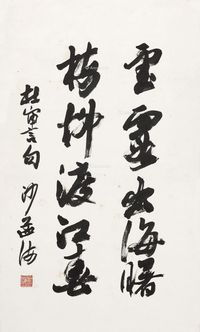 云霞出海曙
梅柳渡江春
杜审言句 沙孟海